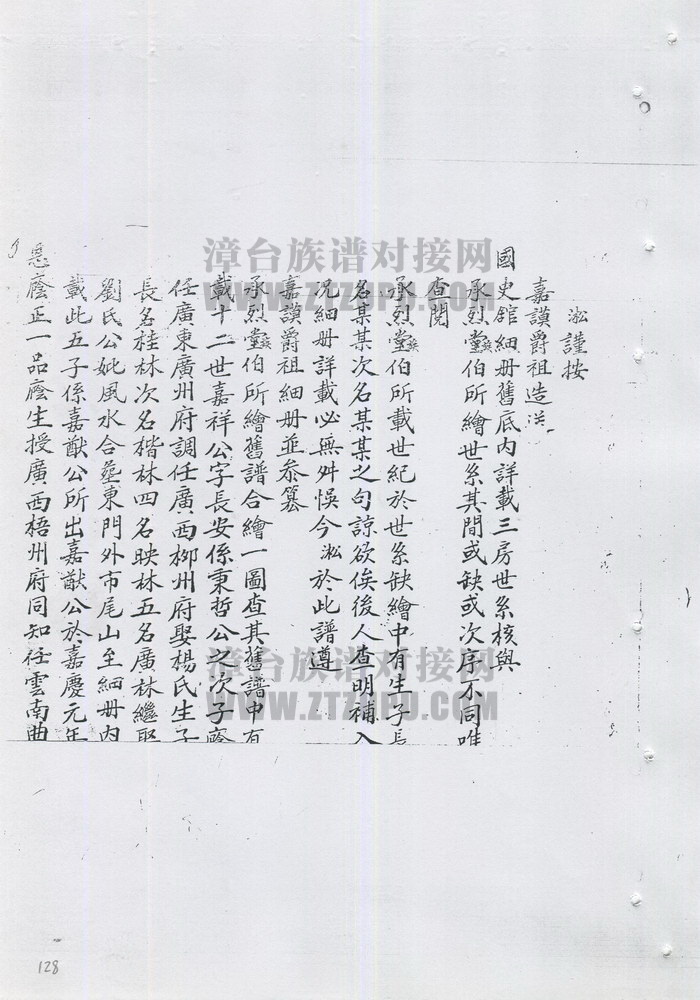 淞謹按
嘉謨爵祖造送
國史館細册舊底内詳載三房世系核與
承烈堂燕伯所繪世系其間或缺或次序不同唯
查閱
承烈堂燕伯所載世紀於世系缺繪中有生子長
名某某次名某某之句諒欲俟後人查明補入
况細册詳載必無舛悞今淞於此譜遵
嘉謨爵祖細册並参篡
承烈堂燕伯所繪舊譜合繪一圖查其舊譜中有
載十二世嘉祥公字長安係秉哲公之次子廕
任廣東廣州府調任廣西柳州府娶楊氏生子
長名桂林次名楷林四名映林五名廣林繼娶
劉氏公妣風水合塟東門外市尾山至細册内
載此五子係嘉猷公所出嘉猷公於嘉慶元年
恩廕正一品廕生授廣西梧州府同知任雲南曲
128
漳台族谱对接网
WWW.ZTZUPU.COM
漳台族谱对接网
WWW.ZTZUPU.COM